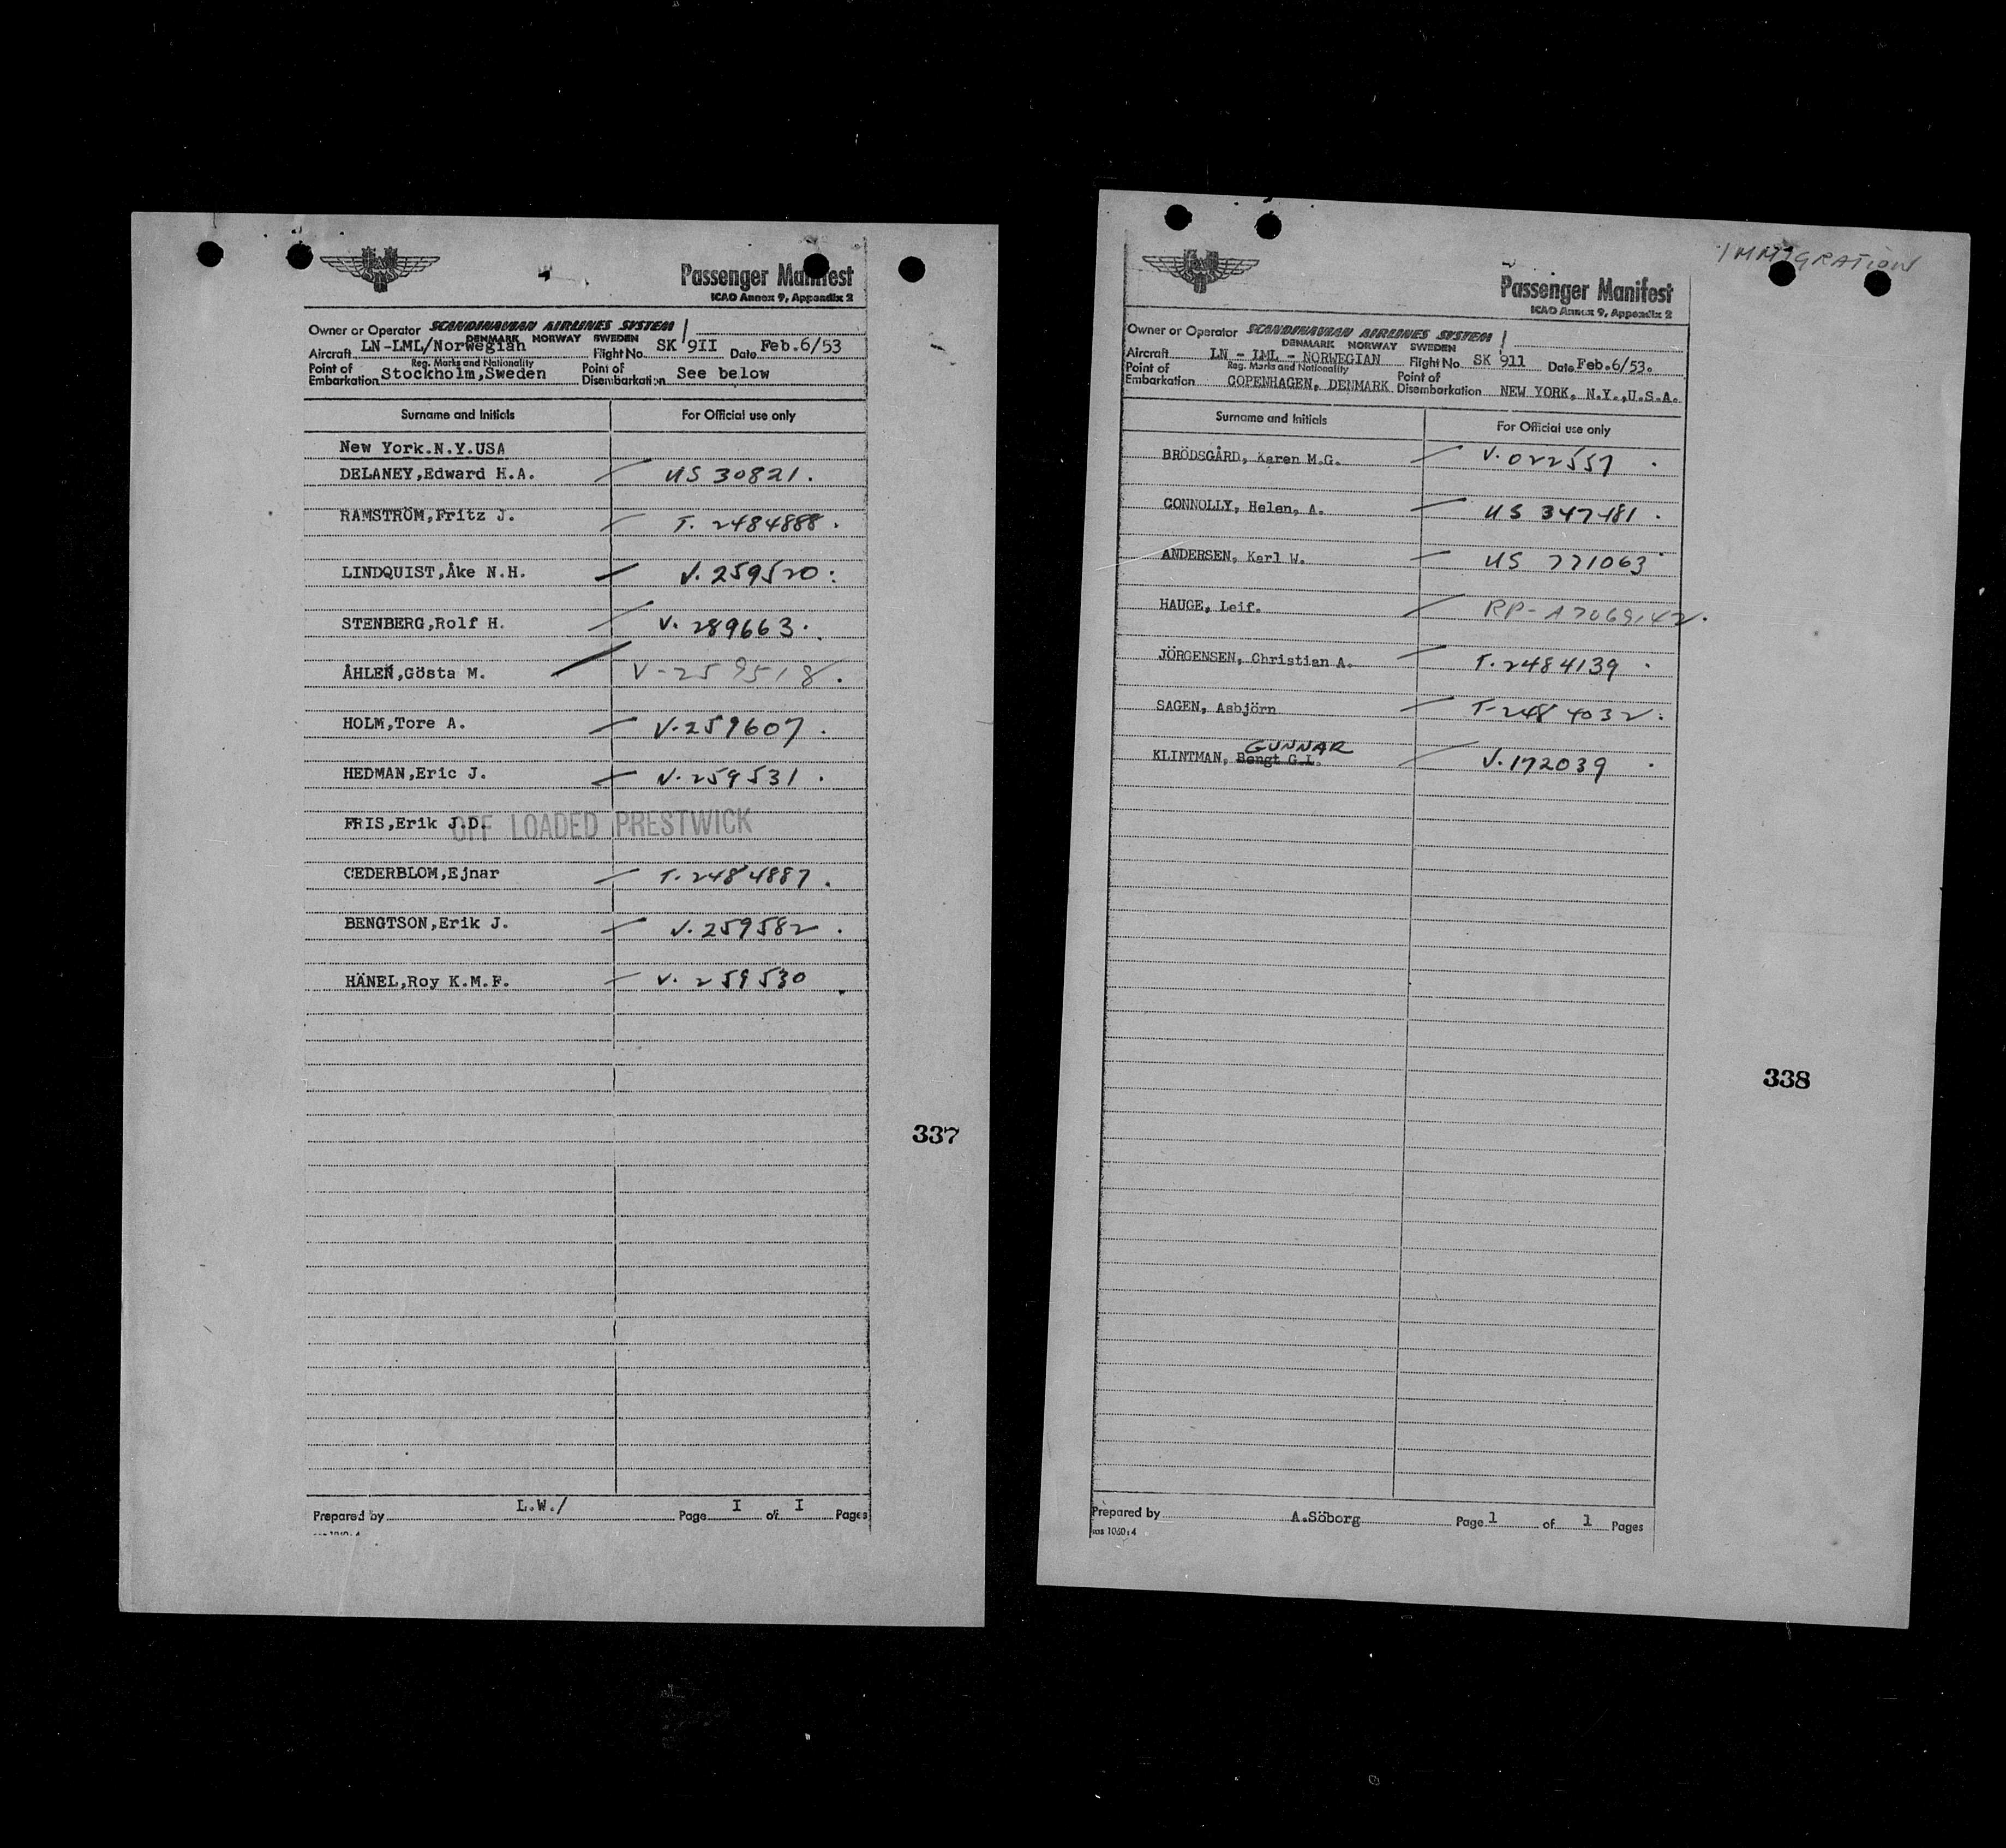 Passenger Manifest
ICAO Annex 9, Appendix 2
Owner or Operator SCANDINAVIAN AIRLINES SYSTEM
DENMARK NORWAY SWEDEN
Aircraft LN-LML/Norwegian Flight No. SK 9II Date Feb.6/53
Reg. Marks and Nationality
Point of Embarkation Stockholm,Sweden Point of Disembarkation See below
Surname and Initials For Official use only
New York.N.Y.USA
DELANEY,Edward H.A. US 30821.
RAMSTRÖM,Fritz J. T. 2484888.
LINDQUIST,Åke N.H. V. 259520.
STENBERG,Rolf H. V. 289663.
ÅHLEN,Gösta M. V-259518.
HOLM,Tore A. V.259607.
HEDMAN,Eric J. V.259531.
FRIS,Erik J.D. OFF LOADED PRESTWICK
CEDERBLOM,Ejnar T.2484887.
BENGTSON,Erik J. V.259582.
HÄNEL,Roy K.M.F. V. 259530
337
Prepared by L.W./ Page I of I Pages
IMMIGRATION
Passenger Manifest
ICAO Annex 9, Appendix 2
Owner or Operator SCANDINAVIAN AIRLINES SYSTEM
DENMARK NORWAY SWEDEN
Aircraft LN - LML - NORWEGIAN Flight No. SK 911 Date Feb.6/53.
Reg. Marks and Nationality
Point of Embarkation COPENHAGEN, DENMARK Point of Disembarkation NEW YORK, N.Y.,U.S.A.
Surname and Initials For Official use only
BRÖDSGÅRD, Karen M.G. V.022557.
CONNOLLY, Helen, A. US 347481.
ANDERSEN, Karl W. US 771063
HAUGE, Leif. RP-A7069142.
JÖRGENSEN, Christian A. T.2484139.
SAGEN, Asbjörn T-2484032.
GUNNAR
KLINTMAN, Bengt G.I. V.172039.
338
Prepared by A.Söborg Page 1 of 1 Pages
sas 1060:4